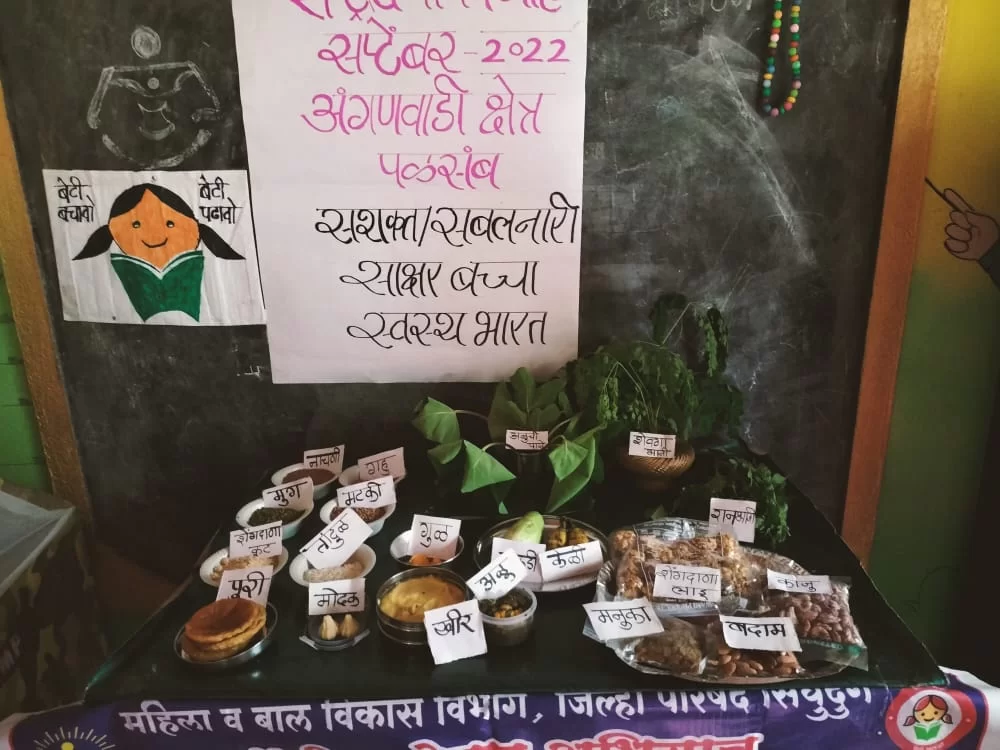 सप्टेंबर - २०२२
अंगणवाडी क्षेत्र
पळसंब
सशक्त/सबलनारी
साक्षर बच्चा
स्वस्थ भारत
बेटी
बचावो
बेटी
पढावो
अळुची
पाने
शेवगा
नाचणी
गहु
मुग
मटकी
शेंगदाणा
कुट
तांदुळ
गुळ
पुरी
मोदक
खीर
अळु
केळी
शेंगदाणा
लाडू
काजु
मनुका
बदाम
महिला व बाल विकास विभाग, जिल्हा परिषद सिंधुदुर्ग